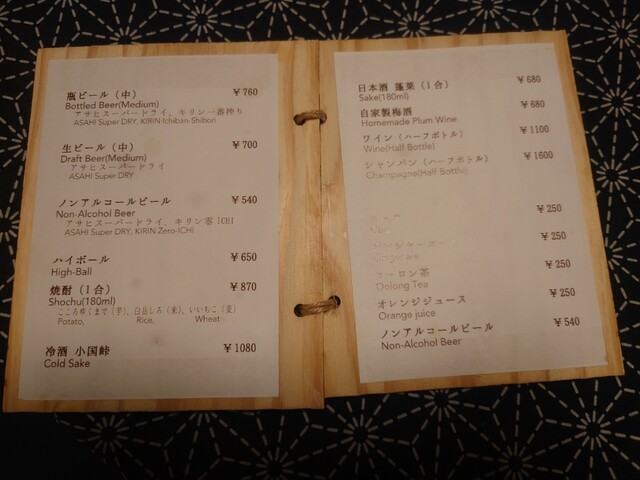 瓶ビール（中） ￥760
Bottled Beer(Medium)
アサヒスーパードライ、キリン一番搾り
ASAHI Super DRY, KIRIN Ichiban-Shibori
生ビール（中） ￥700
Draft Beer(Medium)
アサヒスーパードライ
ASAHI Super DRY
ノンアルコールビール ￥540
Non-Alcohol Beer
アサヒスーパードライ、キリン零 ICHI
ASAHI Super DRY, KIRIN Zero-ICHI
ハイボール ￥650
High-Ball
焼酎（1合） ￥870
Shochu(180ml)
こころゆくまで（芋）、白岳しろ（米）、いいちこ（麦）
Potato, Rice, Wheat
冷酒 小国峠 ￥1080
Cold Sake
日本酒 蓬莱（1合） ￥680
Sake(180ml)
自家製梅酒 ￥680
Homemade Plum Wine
ワイン（ハーフボトル） ￥1100
Wine(Half Bottle)
シャンパン（ハーフボトル） ￥1600
Champagne(Half Bottle)
￥250
￥250
ウーロン茶 ￥250
Oolong Tea
オレンジジュース ￥250
Orange juice
ノンアルコールビール ￥540
Non-Alcohol Beer